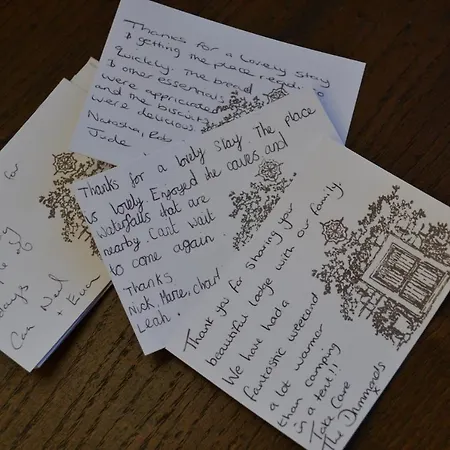 Thanks for a lovely stay
& getting the place ready so
quickly. The bread
& other essentials
were appreciated
and the biscuits
were delicious.
Natasha, Rob,
Jude
Thanks for a lovely stay. The place
is lovely. Enjoyed the caves and
waterfalls that are
nearby. Cant wait
to come again.
Thanks
Nick, Marie, charl
Leah.
Thank you for sharing your
beautiful lodge with our family.
We have had a
fantastic weekend
a lot warmer
than camping
in a tent!!
Take Care
The Drummonds
for
days
Neil
+ Ewan